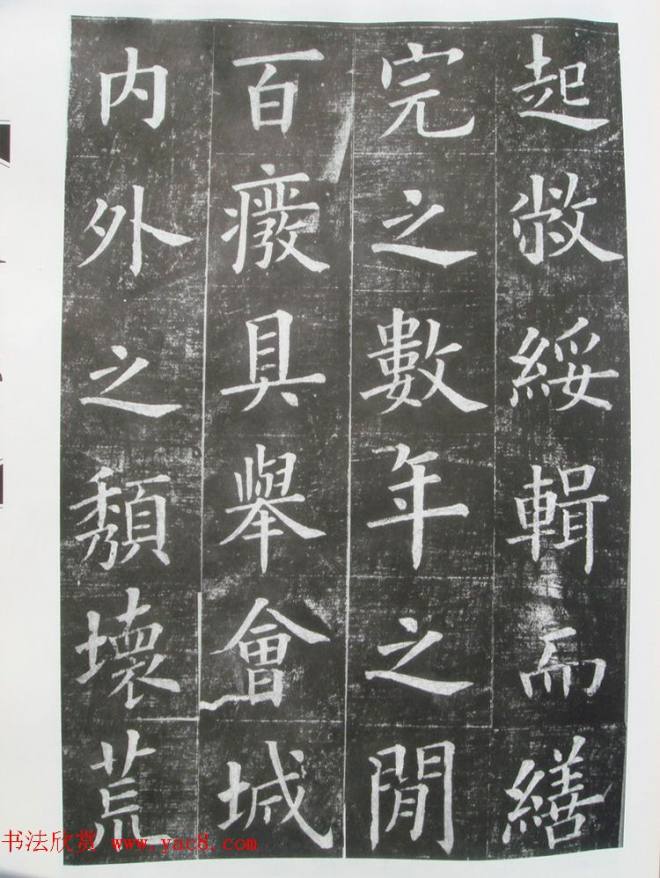 起敝綏輯而繕
完之數年之間
百廢具舉會城
内外之頽壞荒
书法欣赏 www.yac8.com